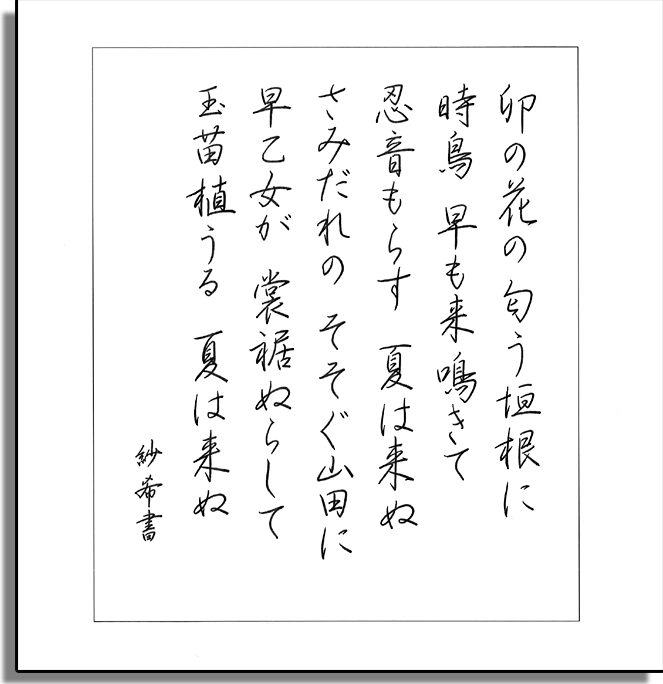 卯の花の 匂う垣根に
時鳥 早も来鳴きて
忍音もらす 夏は来ぬ
さみだれの そそぐ山田に
早乙女が 裳裾ぬらして
玉苗植うる 夏は来ぬ
紗希書